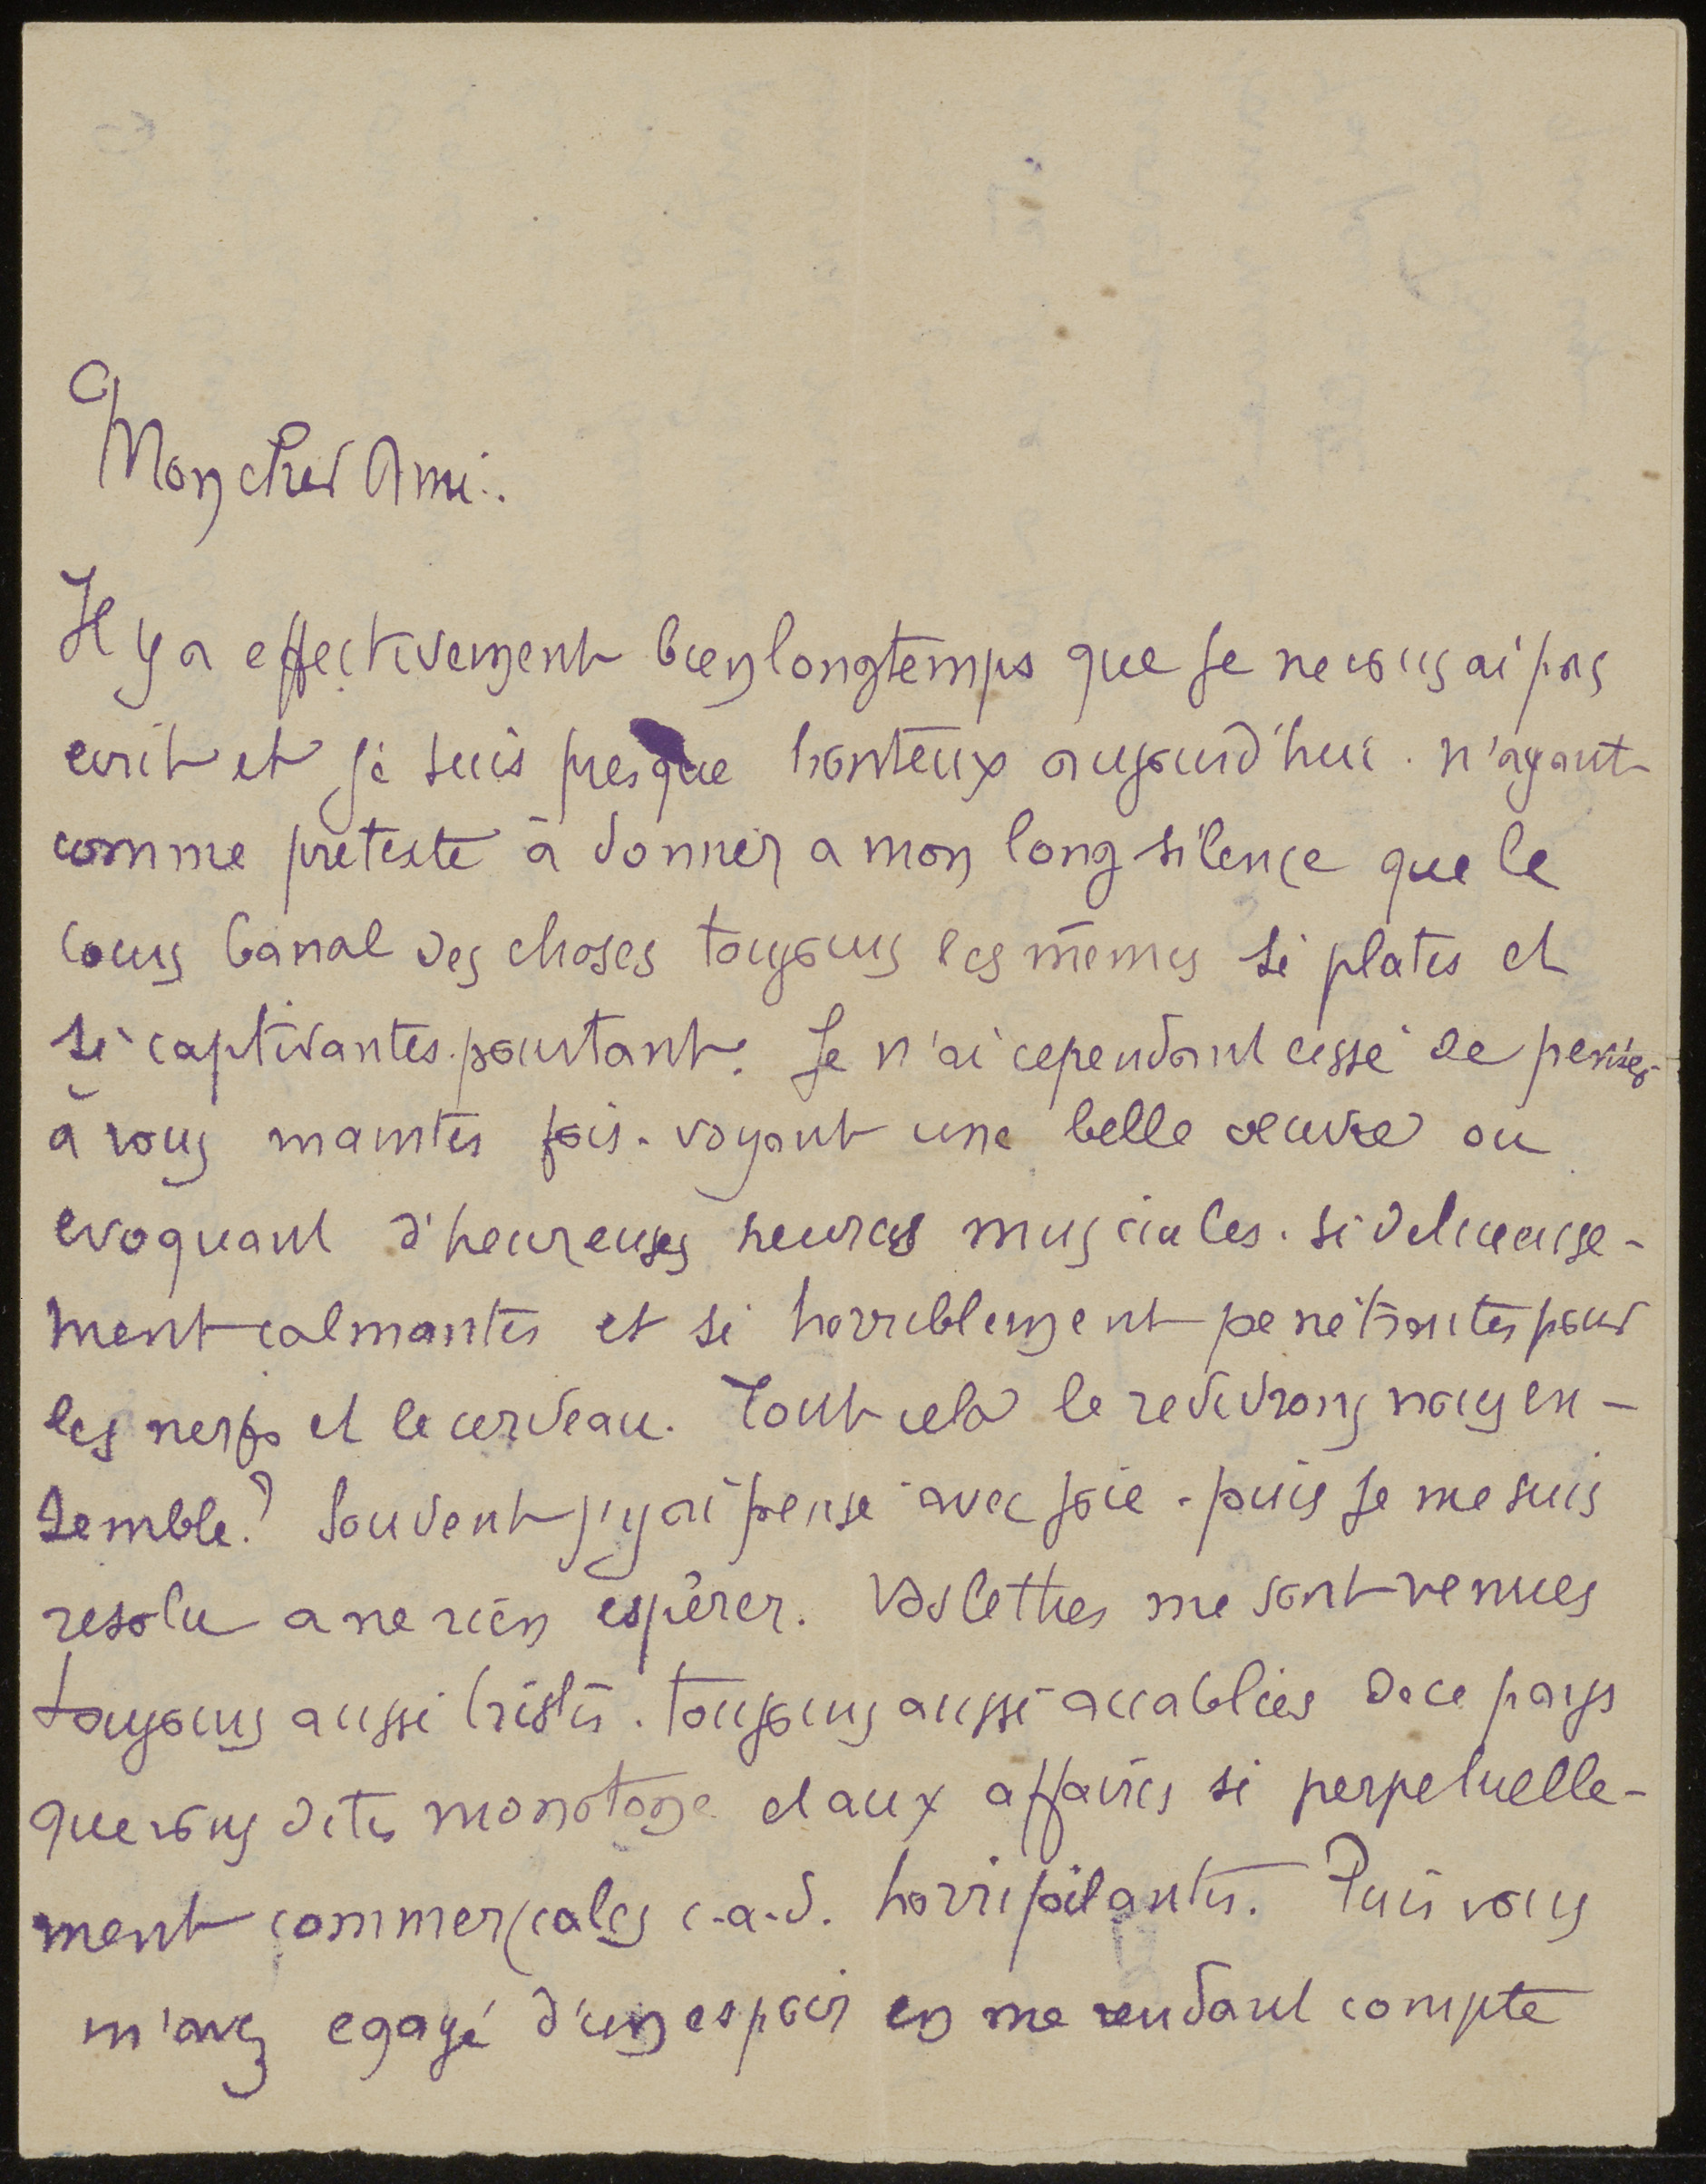 Mon cher Ami.
Il y a effectivement bien longtemps que je ne vous ai pas
ecrit et je suis presque honteux aujourd'hui. n'ayant
comme pretexte à donner a mon long silence que le
cours banal des choses toujours les mêmes si plates et
si captivantes pourtant. Je n'ai cependant cessé de penser
à vous maintes fois. voyant une belle œuvre ou
evoquant d'heureuses heures musicales. si delicieuse-
ment calmantes et si horriblement penétrantes pour
les nerfs et le cerveau. Tout cela le revivrons nous en-
semble? Souvent j'y ai pensé avec joie. puis je me suis
resolu a ne rien espérer. Vos lettres me sont venues
toujours aussi tristes. toujours aussi accablées de ce pays
que vous dites monotone et aux affaires si perpetuelle-
ment commerciales c.a.d. horripilantes. Puis vous
m'avez egayé d'un espoir en me rendant compte